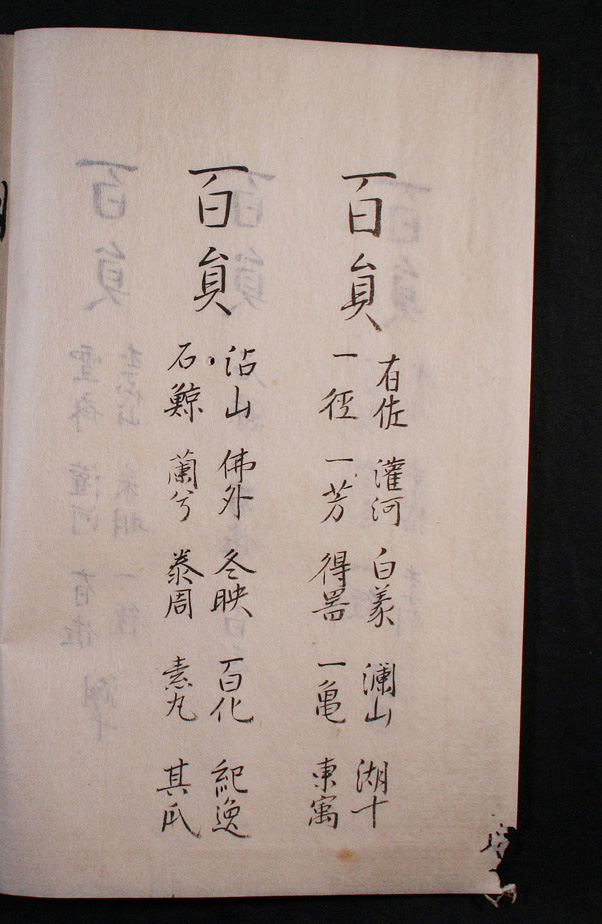 百員
右佐 灌河 白義 瀾山 湖十
一徑 一芳 得器 一亀 東寓
百員
沾山 佛外 冬映 百化 紀逸
石鯨 蘭兮 泰周 素丸 其爪